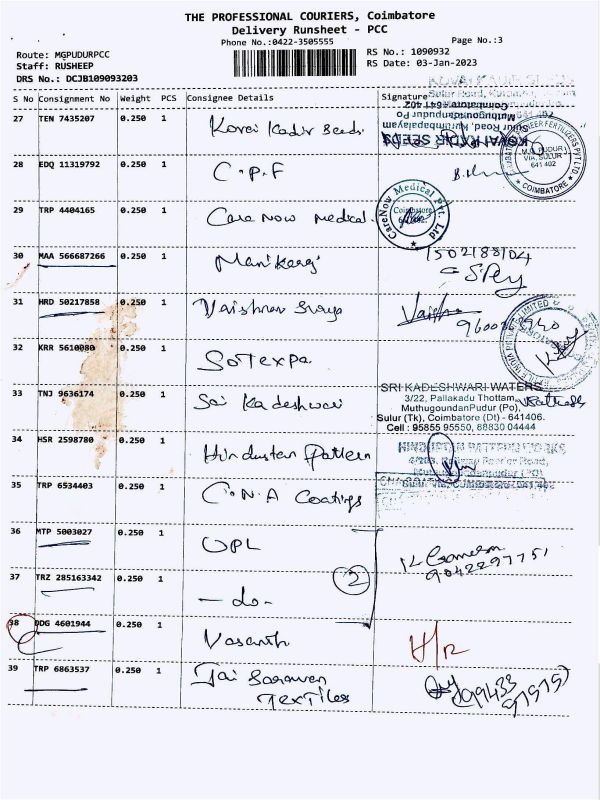 THE PROFESSIONAL COURIERS, Coimbatore
Delivery Runsheet - PCC
Phone No.:0422-3505555
Page No.:3
Route: MGPUDURPCC
Staff: RUSHEEP
DRS No.: DCJB109093203
RS No.: 1090932
RS Date: 03-Jan-2023
S No Consignment No Weight PCS Consignee Details Signature
27 TEN 7435207 0.250 1 Kovai Kadir Seeds
KOVAI KADIR SEEDS
Sulur Road, Kurumbapalayam
Muthugoundanpudur Po
Coimbatore 641 402
28 EDQ 11319792 0.250 1 C.P.F
M.G. PUDUR
VIA. SULUR
641 402
COIMBATORE
29 TRP 4404165 0.250 1 Care Now Medical.
CareNow Medical Pvt. Ltd
Coimbatore
641 402.
30 MAA 566687266 0.250 1
31 HRD 50217858 0.250 1
32 KRR 5610080 0.250 1 SOTEXPA
33 TNJ 9636174 0.250 1 Sai Kadeshwari
SRI KADESHWARI WATERS
3/22, Pallakadu Thottam,
MuthugoundanPudur (Po),
Sulur (Tk), Coimbatore (Dt) - 641406.
Cell : 95855 95550, 88830 04444
34 HSR 2598780 0.250 1 Hindustan Pattern
HINDUSTAN PATTERN WORKS
35 TRP 6534403 0.250 1 C.N.A Coatings
36 MTP 5003027 0.250 1 UPL
9042297751
37 TRZ 285163342 0.250 1 - do - 2
38 DDG 4601944 0.250 1 Vasanth H/R
39 TRP 6863537 0.250 1 Jai Sarawan
Textiles